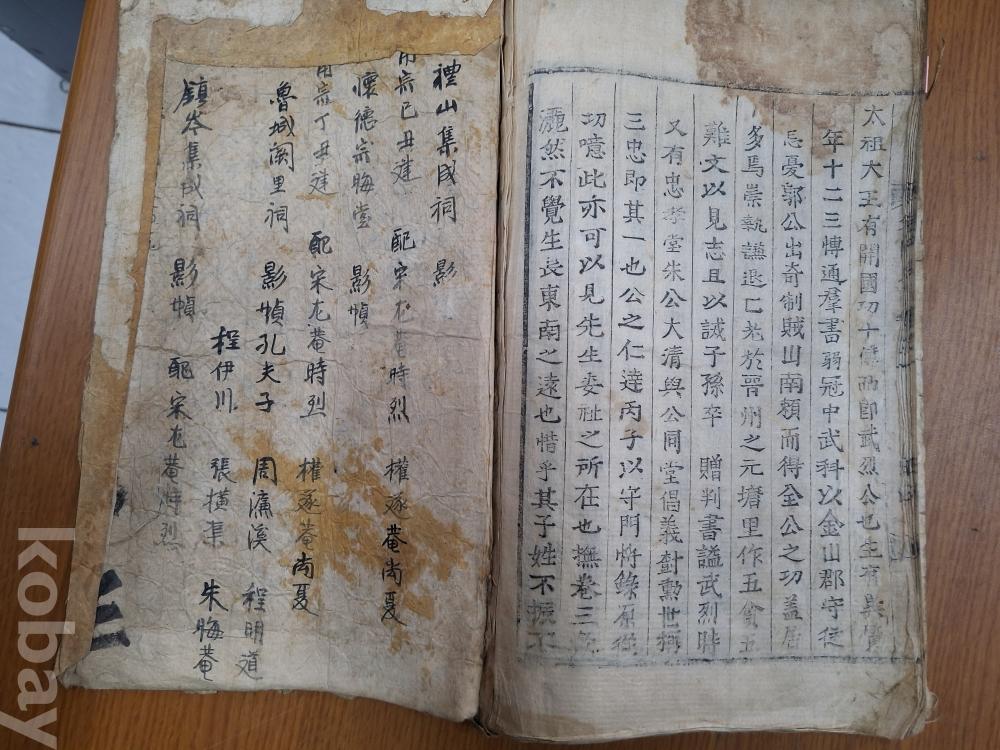 太祖大王有開國功十世而卽武烈公也生有異質
年十二三博通羣書弱冠中武科以金山郡守從
忘憂郭公出奇制賊山南賴而得全公之功盖居
多焉崇執謙退己老於晋州之元塘里作五
難文以見志且以誡子孫卒 贈判書謚武烈時
又有忠孝堂朱公大清與公同堂倡義討勳世稱
三忠即其一也公之仁達丙子以守門將錄原從
功噫此亦可以見先生委祉之所在也撫卷三
灑然不覺生長東南之遠也惜乎其子姓不振不
禮山集成祠 影
宗己丑建 配宋尤菴時烈 權遂菴尚夏
懷德宗晦堂 影幀
宗丁丑建 配宋尤菴時烈 權遂菴尚夏
魯城闕里祠 影幀孔夫子 周濂溪 程明道
程伊川 張橫渠 朱晦菴
鎮岑集成祠 影幀 配宋尤菴時烈
三
kobay